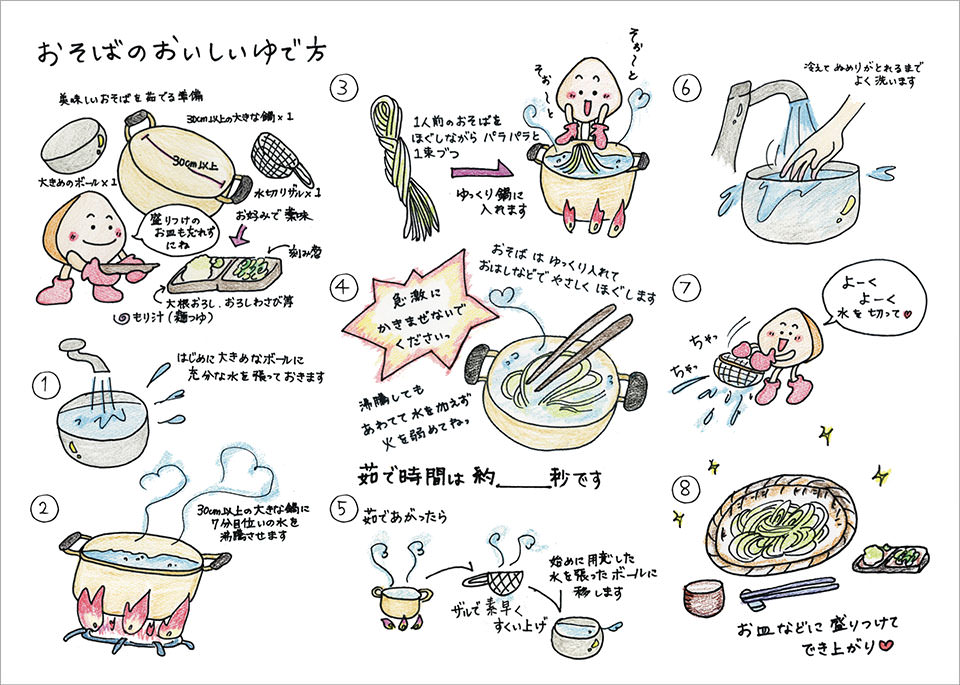 おそばのおいしいゆで方
美味しいおそばを茹でる準備
30cm以上の大きな鍋×1
30cm以上
大きめのボール×1
水切りザル×1
盛りつけの
お皿も忘れず
にね
お好みで薬味
刻み葱
大根おろし、おろしわさび等
もり汁(麺つゆ)
①
はじめに大きめなボールに
充分な水を張っておきます
②
30cm以上の大きな鍋に
7分目位いの水を
沸騰させます
③
1人前のおそばを
ほぐしながらパラパラと
1束づつ
ゆっくり鍋に
入れます
そぉ〜と
そぉ〜と
④
おそばはゆっくり入れて
おはしなどでやさしくほぐします
急激に
かきまぜないで
くださいっ
沸騰しても
あわてて水を加えず
火を弱めてねっ
茹で時間は約____秒です
⑤
茹であがったら
ザルで素早く
すくい上げ
始めに用意した
水を張ったボールに
移します
⑥
冷えてぬめりがとれるまで
よく洗います
⑦
よーく
よーく
水を切って♥
ちゃっ
ちゃっ
⑧
お皿などに盛りつけて
でき上がり♥